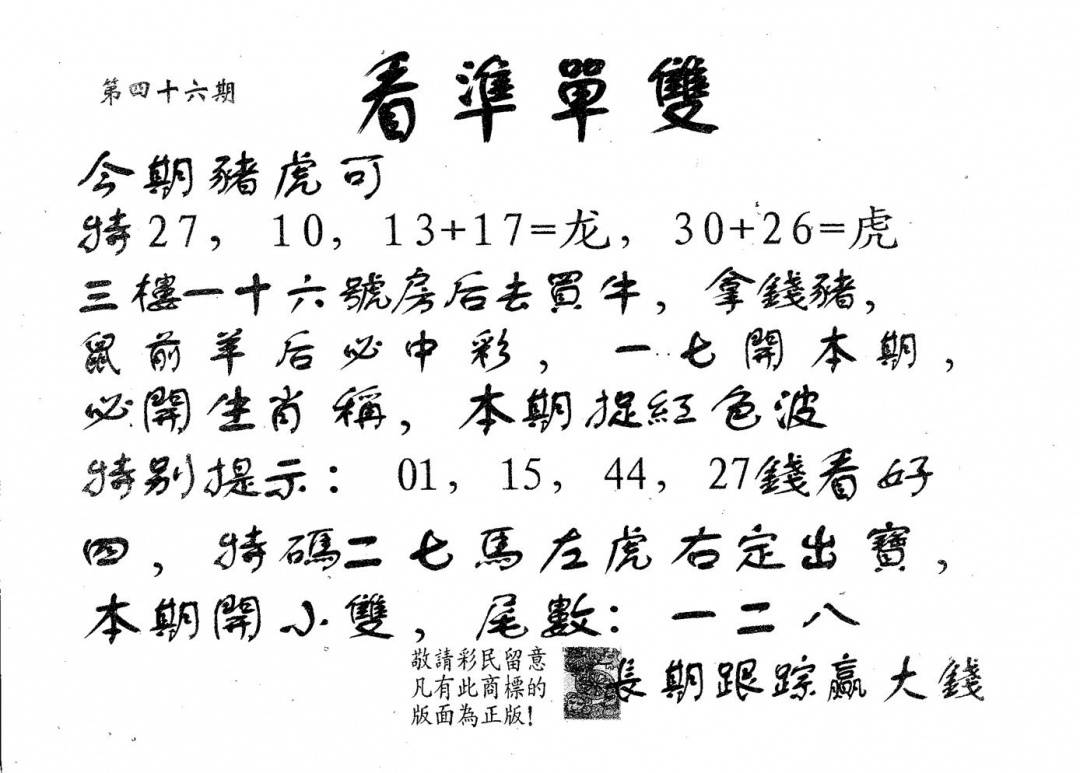 第四十六期
看準單雙
今期豬虎可
特27，10，13+17=龙，30+26=虎
三樓一十六號房后去買牛，拿錢豬，
鼠前羊后必中彩，一七開本期，
必開生肖稱，本期捉紅色波
特别提示：01，15，44，27錢看好
四，特碼二七馬左虎右定出寶，
本期開小雙，尾數：一二八
敬請彩民留意
凡有此商標的
版面為正版！
長期跟踪贏大錢